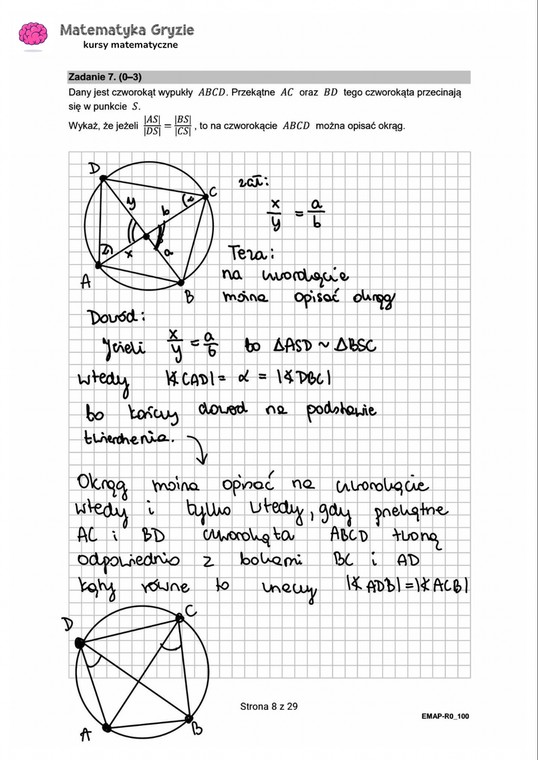 Matematyka Gryzie
kursy matematyczne
Zadanie 7. (0–3)
Dany jest czworokąt wypukły ABCD. Przekątne AC oraz BD tego czworokąta przecinają
się w punkcie S.
Wykaż, że jeżeli |AS|/|DS| = |BS|/|CS|, to na czworokącie ABCD można opisać okrąg.
D
C
y
b
x
a
A
B
zał:
x/y = a/b
Teza:
na czworokącie
można opisać okrąg
Dowód:
Jeżeli x/y = a/b bo ΔASD ~ ΔBSC
wtedy |∢CAD| = α = |∢DBC|
bo kończy dowód na podstawie
twierdzenia.
Okrąg można opisać na czworokącie
wtedy i tylko wtedy, gdy przekątne
AC i BD czworokąta ABCD tworzą
odpowiednio z bokami BC i AD
kąty równe to znaczy |∢ADB|=|∢ACB|
D
C
A
B
Strona 8 z 29
EMAP-R0_100